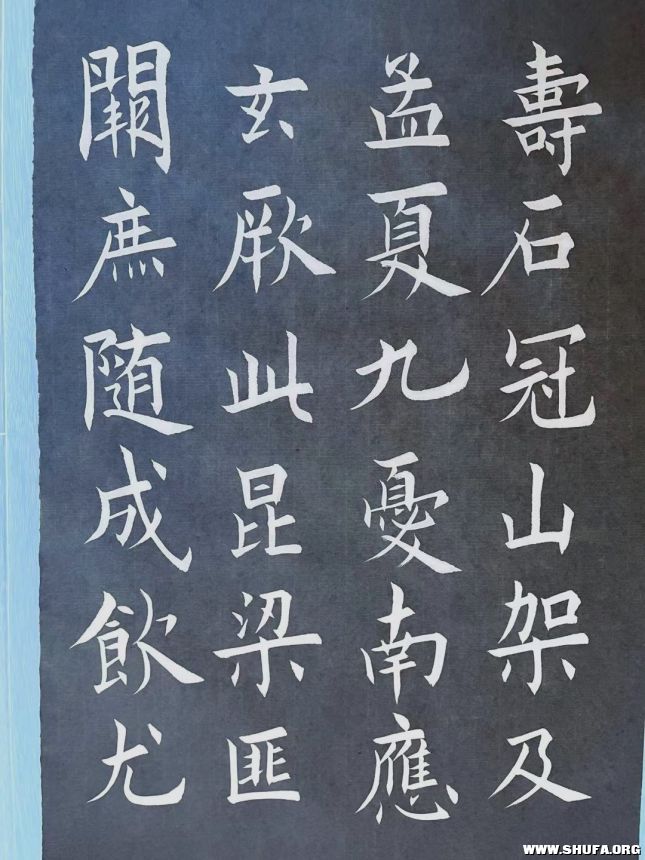 壽石冠山架及
孟夏九憂南應
玄厥此昆梁匪
庶随成飲尤
WWW.SHUFA.ORG